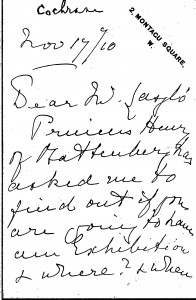 Cochrane
2, MONTAGU SQUARE,
W.
Nov 17/10
Dear Mr Laszló
Princess Henry
of Battenberg has
asked me to
find out if you
are going to have
an Exhibition
& where? & when